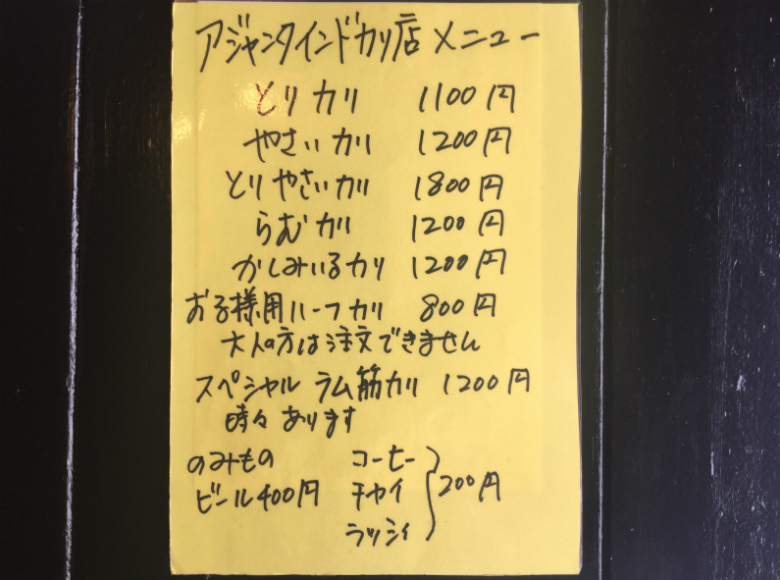 アジャンタインドカリ店メニュー
とりカリ 1100円
やさいカリ 1200円
とりやさいカリ 1800円
らむカリ 1200円
かしみいるカリ 1200円
お子様用ハーフカリ 800円
大人の方は注文できません
スペシャル ラム筋カリ 1200円
時々あります
のみもの コーヒー
ビール400円 チャイ 200円
ラッシィ